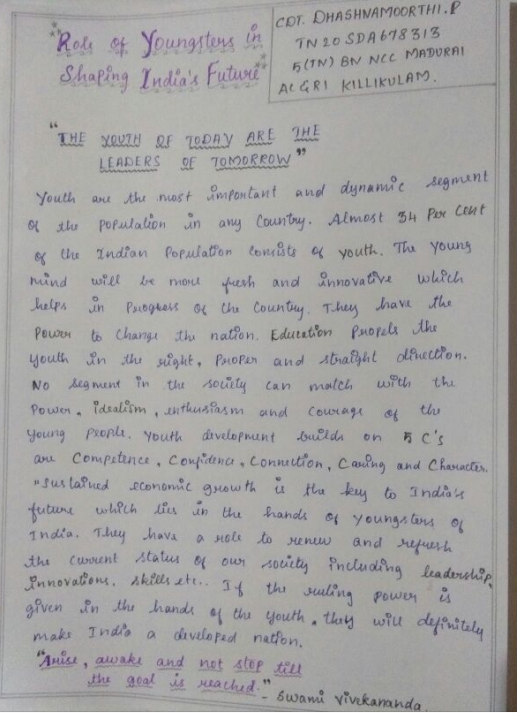 Role of Youngsters in
Shaping India's Future
CDT. DHASHNAMOORTHI.P
TN20SDA678313
5(TN) BN NCC MADURAI
AC&RI KILLIKULAM.
"THE YOUTH OF TODAY ARE THE
LEADERS OF TOMORROW"
Youth are the most important and dynamic segment
of the population in any Country. Almost 34 Per Cent
of the Indian Population consists of youth. The young
mind will be more fresh and innovative which
helps in Progress of the Country. They have the
Power to Change the nation. Education Propels the
youth in the right, Proper and straight direction.
No segment in the society can match with the
Power, idealism, enthusiasm and courage of the
young People. Youth development builds on 5 C's
are Competence, Confidence, Connection, Caring and Character.
"Sustained economic growth is the key to India's
future which lies in the hands of youngsters of
India. They have a role to renew and refresh
the current status of our society including leadership,
innovations, skills etc.. If the ruling power is
given in the hands of the youth, they will definitely
make India a developed nation.
"Arise, awake and not stop till
the goal is reached."
- Swami Vivekananda.